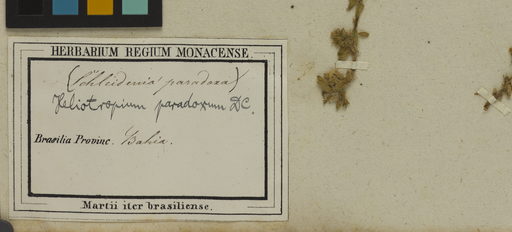 HERBARIUM REGIUM MONACENSE.
(Schleidenia paradoxa)
Heliotropium paradoxum DC.
Brasilia Provinc. Bahia.
Martii iter brasiliense.